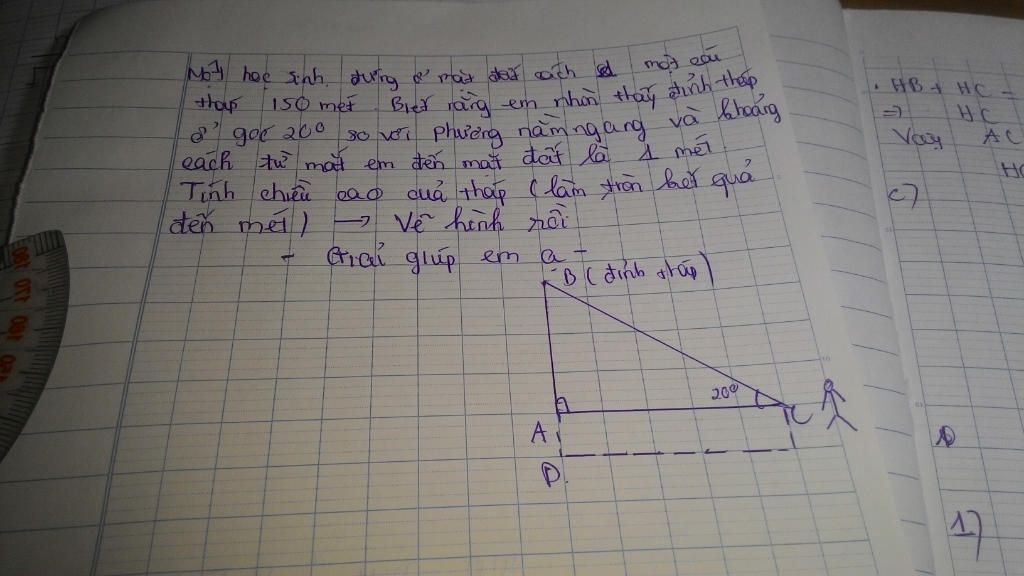 Một học sinh đứng ở mặt đất cách một cái
tháp 150 mét. Biết rằng em nhìn thấy đỉnh tháp
ở góc 20° so với phương nằm ngang và khoảng
cách từ mắt em đến mặt đất là 1 mét.
Tính chiều cao của tháp (làm tròn kết quả
đến mét) → Vẽ hình rồi
- Giải giúp em ạ -
B (đỉnh tháp)
20°
A
C
D
HB + HC =
⇒ HC
Vậy AC
HC
c)
1)